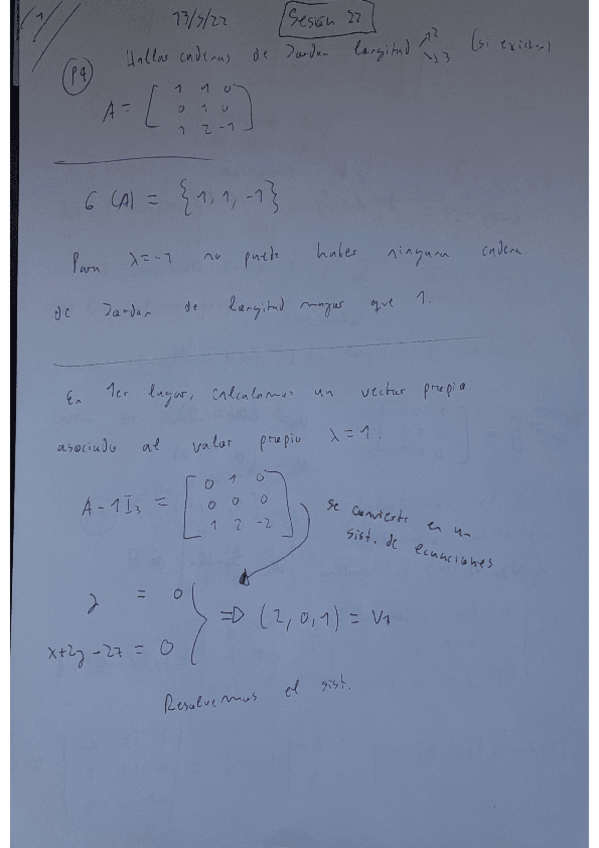 1
17/5/22
Sesion 22
P9
Hallar cadenas de Jordan longitud 2 3 (si existen)
A = [ 1 1 0
0 1 0
1 2 -1 ]
σ (A) = {1, 1, -1}
Para λ=-1 no puede haber ninguna cadena
de Jordan de longitud mayor que 1.
En 1er lugar, calculamos un vector propio
asociado al valor propio λ=1.
A-1I₃ = [ 0 1 0
0 0 0
1 2 -2 ]
se convierte en un
sist. de ecuaciones
y = 0
x+2y-2z = 0
⇒ (2,0,1) = V1
Resolvemos el sist.